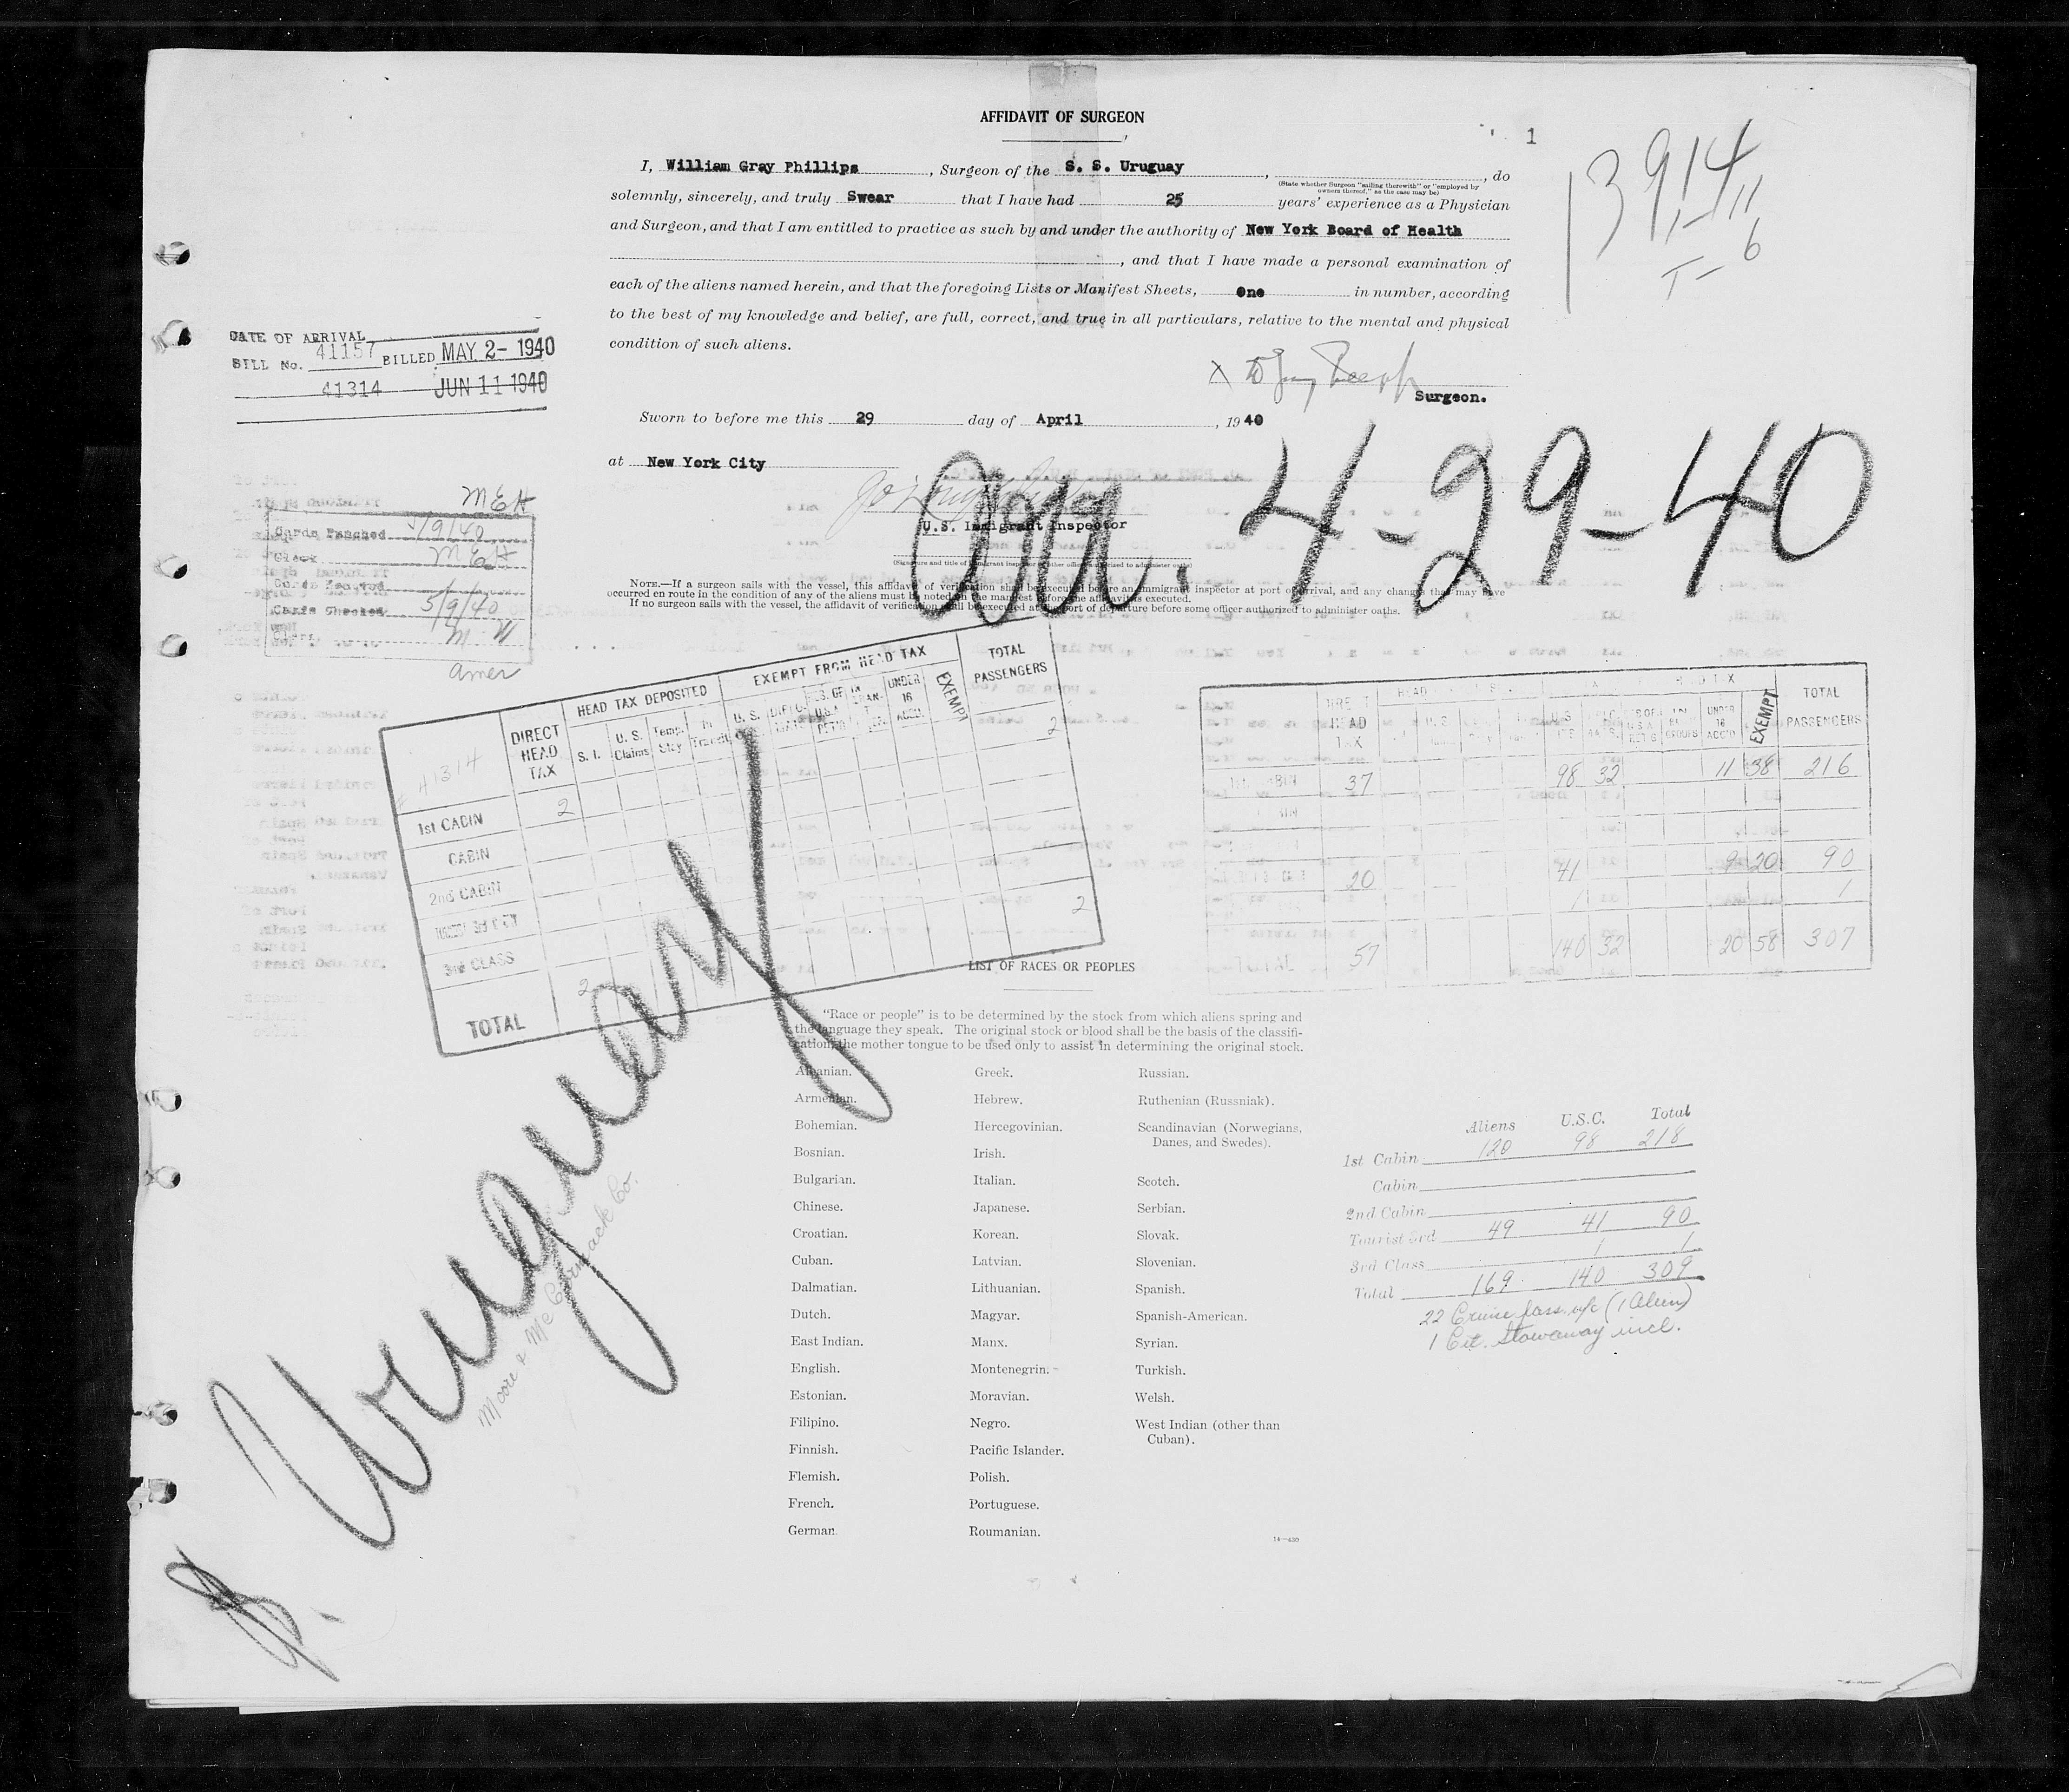 AFFIDAVIT OF SURGEON
1
13914
11
6
I, William Gray Phillips, Surgeon of the S. S. Uruguay, , do
(State whether Surgeon "sailing therewith" or "employed by owners thereof," as the case may be)
solemnly, sincerely, and truly Swear that I have had 25 years' experience as a Physician
and Surgeon, and that I am entitled to practice as such by and under the authority of New York Board of Health
, and that I have made a personal examination of
each of the aliens named herein, and that the foregoing Lists or Manifest Sheets, One in number, according
to the best of my knowledge and belief, are full, correct, and true in all particulars, relative to the mental and physical
condition of such aliens.
X
Surgeon.
Sworn to before me this 29 day of April, 1940
at New York City
U.S. Immigrant Inspector
(Signature and title of immigrant inspector or other officer authorized to administer oaths)
4-29-40
NOTE.—If a surgeon sails with the vessel, this affidavit of verification shall be executed before an immigrant inspector at port of arrival, and any changes that may have
occurred en route in the condition of any of the aliens must be noted on the manifest before the affidavit is executed.
If no surgeon sails with the vessel, the affidavit of verification shall be executed at the port of departure before some officer authorized to administer oaths.
DATE OF ARRIVAL
BILL No. 41157 BILLED MAY 2- 1940
41314 JUN 11 1940
MEH
Cards Punched 5/9/40
Clerk MEH
Cards Checked 5/9/40
Clerk M W
amer
41314
DIRECT HEAD TAX
HEAD TAX DEPOSITED
S. I.
U. S. Claims
Temp. Stay
In Transit
EXEMPT FROM HEAD TAX
UNDER 16 ACC'D.
EXEMPT
TOTAL PASSENGERS
1st CABIN 2 2
CABIN
2nd CABIN
3rd CLASS
TOTAL 2 2
DIRECT HEAD TAX
UNDER 16 ACC'D
EXEMPT
TOTAL PASSENGERS
1st CABIN 37 98 32 11 38 216
20 41 9 20 90
1 1
57 140 32 20 58 307
LIST OF RACES OR PEOPLES
"Race or people" is to be determined by the stock from which aliens spring and
the language they speak. The original stock or blood shall be the basis of the classifi-
cation, the mother tongue to be used only to assist in determining the original stock.
Albanian.
Armenian.
Bohemian.
Bosnian.
Bulgarian.
Chinese.
Croatian.
Cuban.
Dalmatian.
Dutch.
East Indian.
English.
Estonian.
Filipino.
Finnish.
Flemish.
French.
German.
Greek.
Hebrew.
Hercegovinian.
Irish.
Italian.
Japanese.
Korean.
Latvian.
Lithuanian.
Magyar.
Manx.
Montenegrin.
Moravian.
Negro.
Pacific Islander.
Polish.
Portuguese.
Roumanian.
Russian.
Ruthenian (Russniak).
Scandinavian (Norwegians,
Danes, and Swedes).
Scotch.
Serbian.
Slovak.
Slovenian.
Spanish.
Spanish-American.
Syrian.
Turkish.
Welsh.
West Indian (other than
Cuban).
14—430
Aliens U.S.C. Total
1st Cabin 120 98 218
Cabin
2nd Cabin
Tourist 3rd 49 41 90
3rd Class 1 1
Total 169 140 309
22 Cruise pass. u/c (1 Alien)
1 Cit. Stowaway incl.
Uruguay
Moore & McCormack Co.